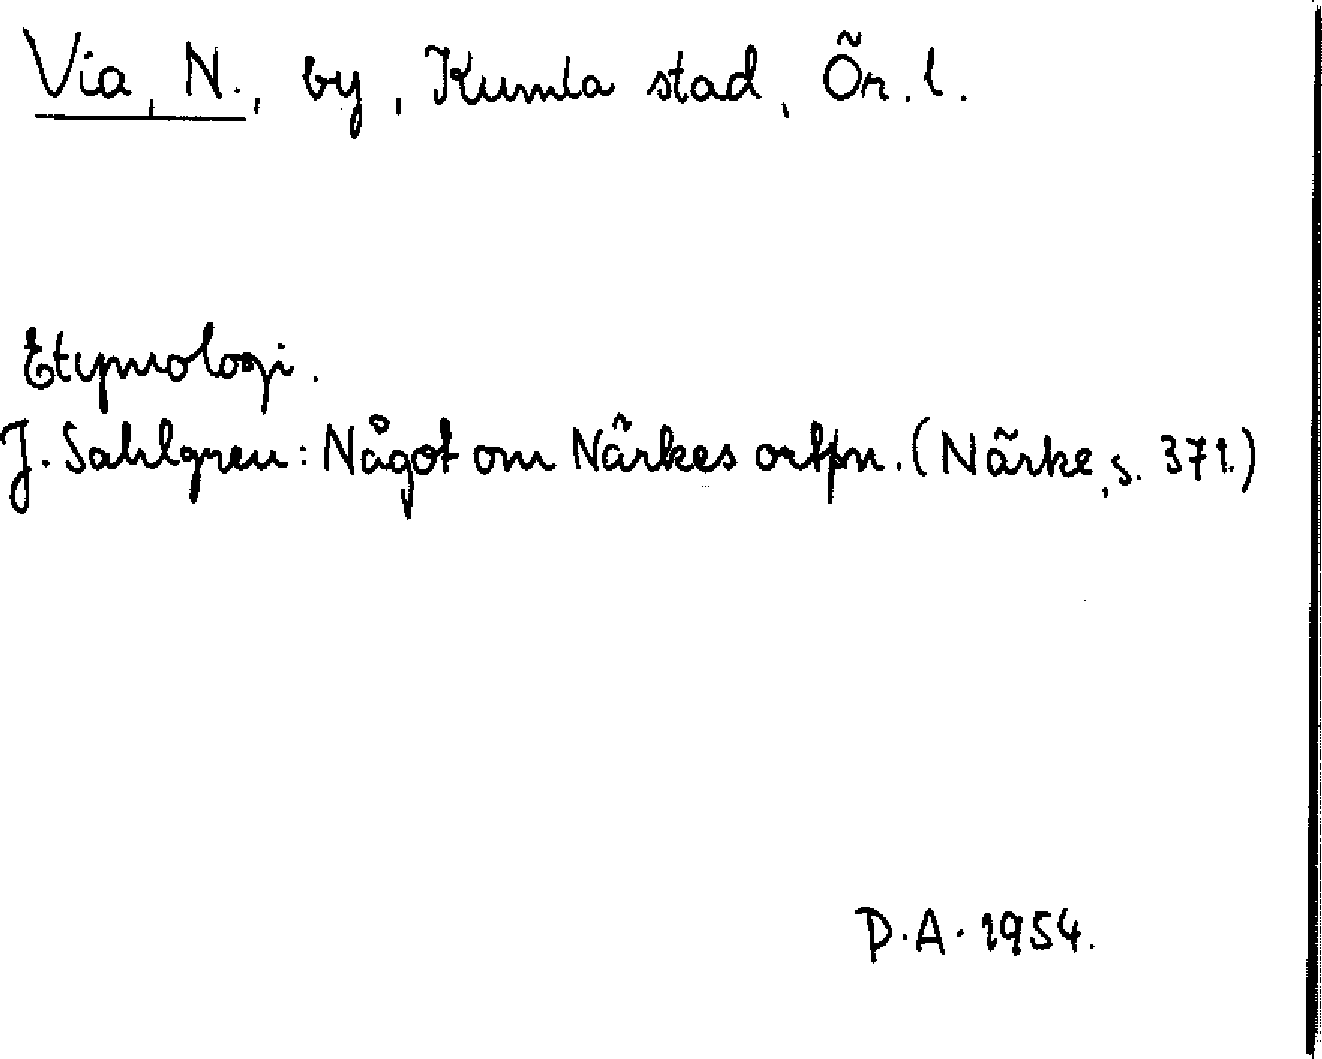 Via, N., by, Kumla stad, Ör. l.
Etymologi.
J. Sahlgren: Något om Närkes ortpn. (Närke, s. 371.)
D.A. 1954.